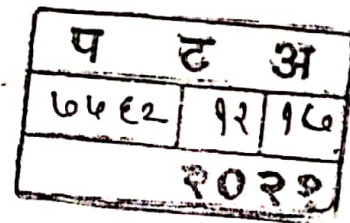 प ट अ
७५६२ १२ १७
२०२१